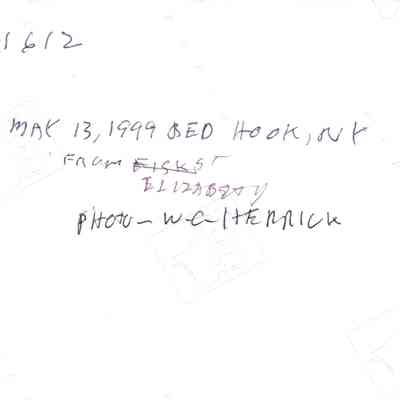 1612
MAY 13, 1999 RED HOOK, NY
FROM FISK ST
ELIZABETH
PHOTO - W-C-HERRICK